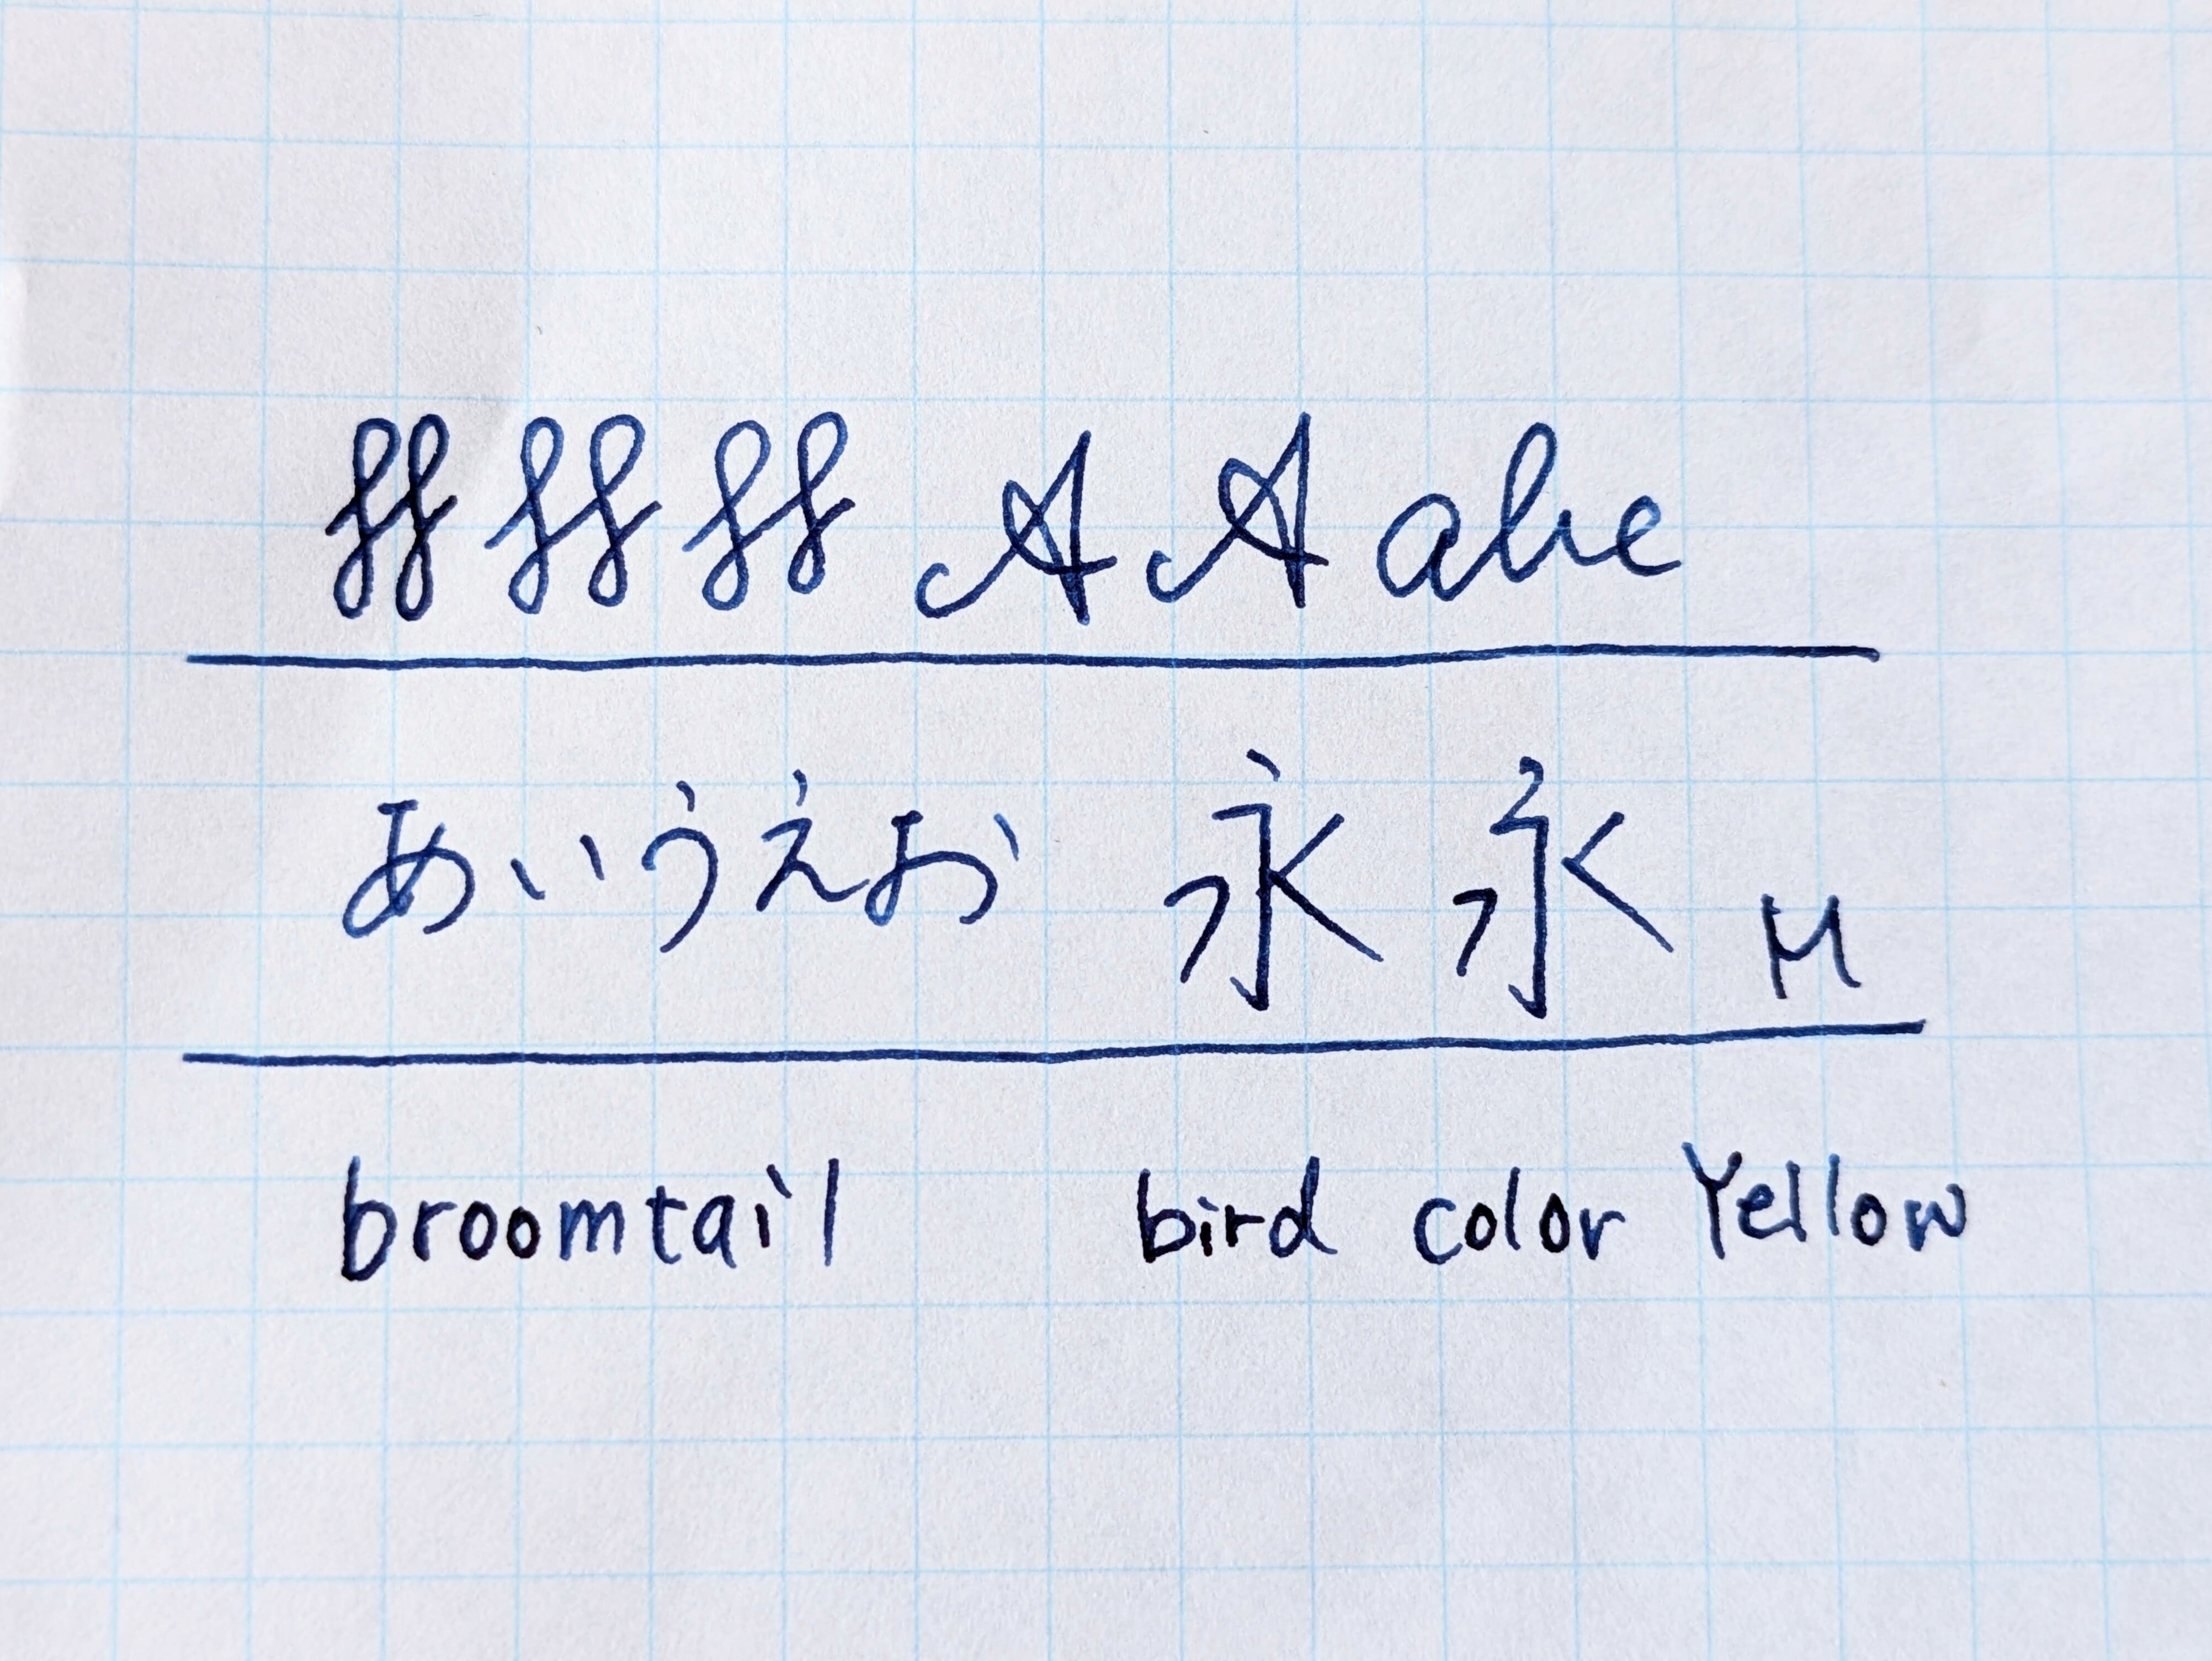 ff ff ff A A abc
あいうえお 永 永 M
broomtail bird color Yellow